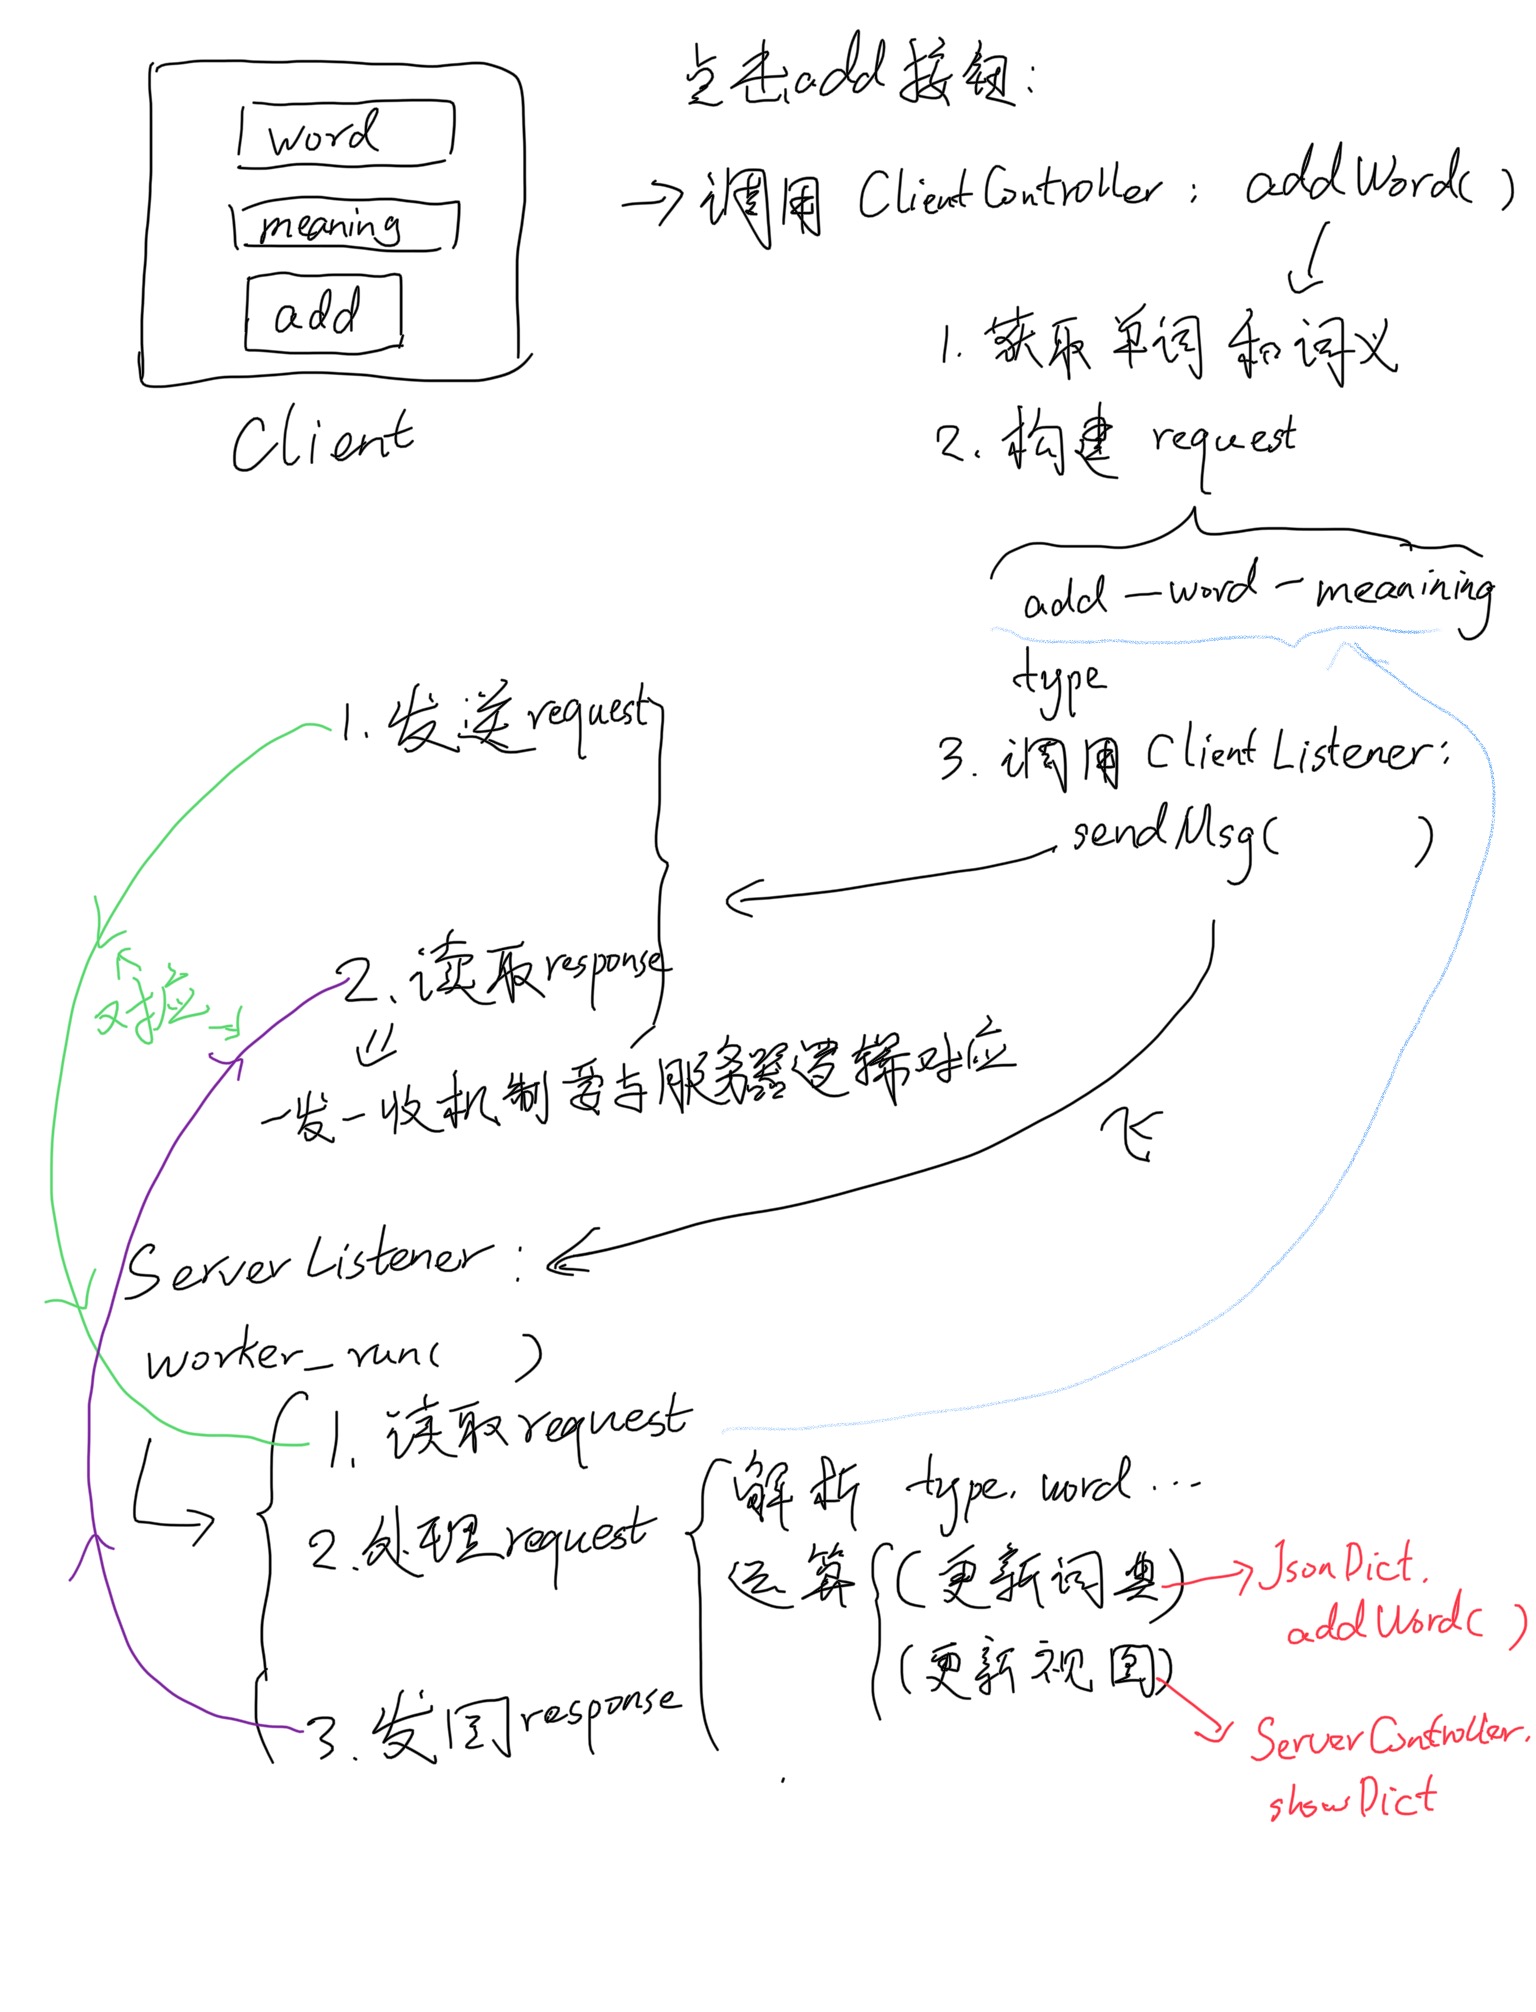 word
meaning
add
Client
点击add按钮:
→调用 ClientController: addWord( )
1. 获取单词和词义
2. 构建 request
add — word — meanining
type
3. 调用 Client Listener:
sendMsg( )
1. 发送request
2. 读取response
对应
一发一收机制要与服务器逻辑对应
飞
Server Listener:
worker_run( )
1. 读取request
2. 处理request
解析 type. word ...
运算 (更新词典)
(更新视图)
JsonDict.
addWord( )
3. 发回response
ServerController.
showDict